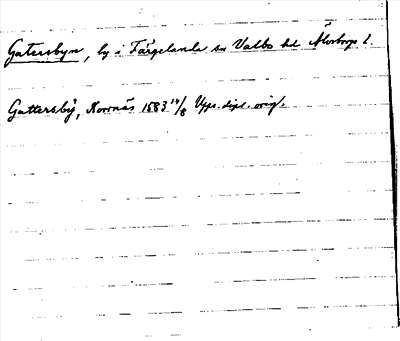 Gatersbyn, by i Färgelanda sn Valbo hd Älvsborgs l.
Guttersbÿ, 1583 14/8 Upps. dipl. orig.